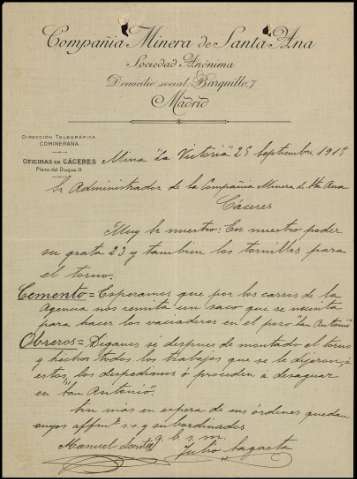 Compañia Minera de Santa Ana
Sociedad Anónima
Domicilio social, Barquillo, 7
Madrid
DIRECCIÓN TELEGRÁFICA
COMINERANA
OFICINAS EN CÁCERES
Plaza del Duque
Mina "La Victoria" 25 Septiembre 191
Sr Administrador de la Compañia Minera de Sta Ana
Cáceres
Muy Sr nuestro: En nuestro poder
su grata 23 y tambien los tornillos para
el torno.
Cemento = Esperamos que por los carros de la
Agencia nos remita un saco que se necesita
para hacer los vaciaderos en el pozo "San Antonio"
Obreros = Diganos si despues de montado el torno
y hechos todos los trabajos que se le dijeron á
estos, los despedimos ó proceden á desaguar
en "San Antonio".
Sin mas en espera de sus órdenes quedan
suyos affmos s.s. y subordinados
q b s m
Manuel Julio Sagasta